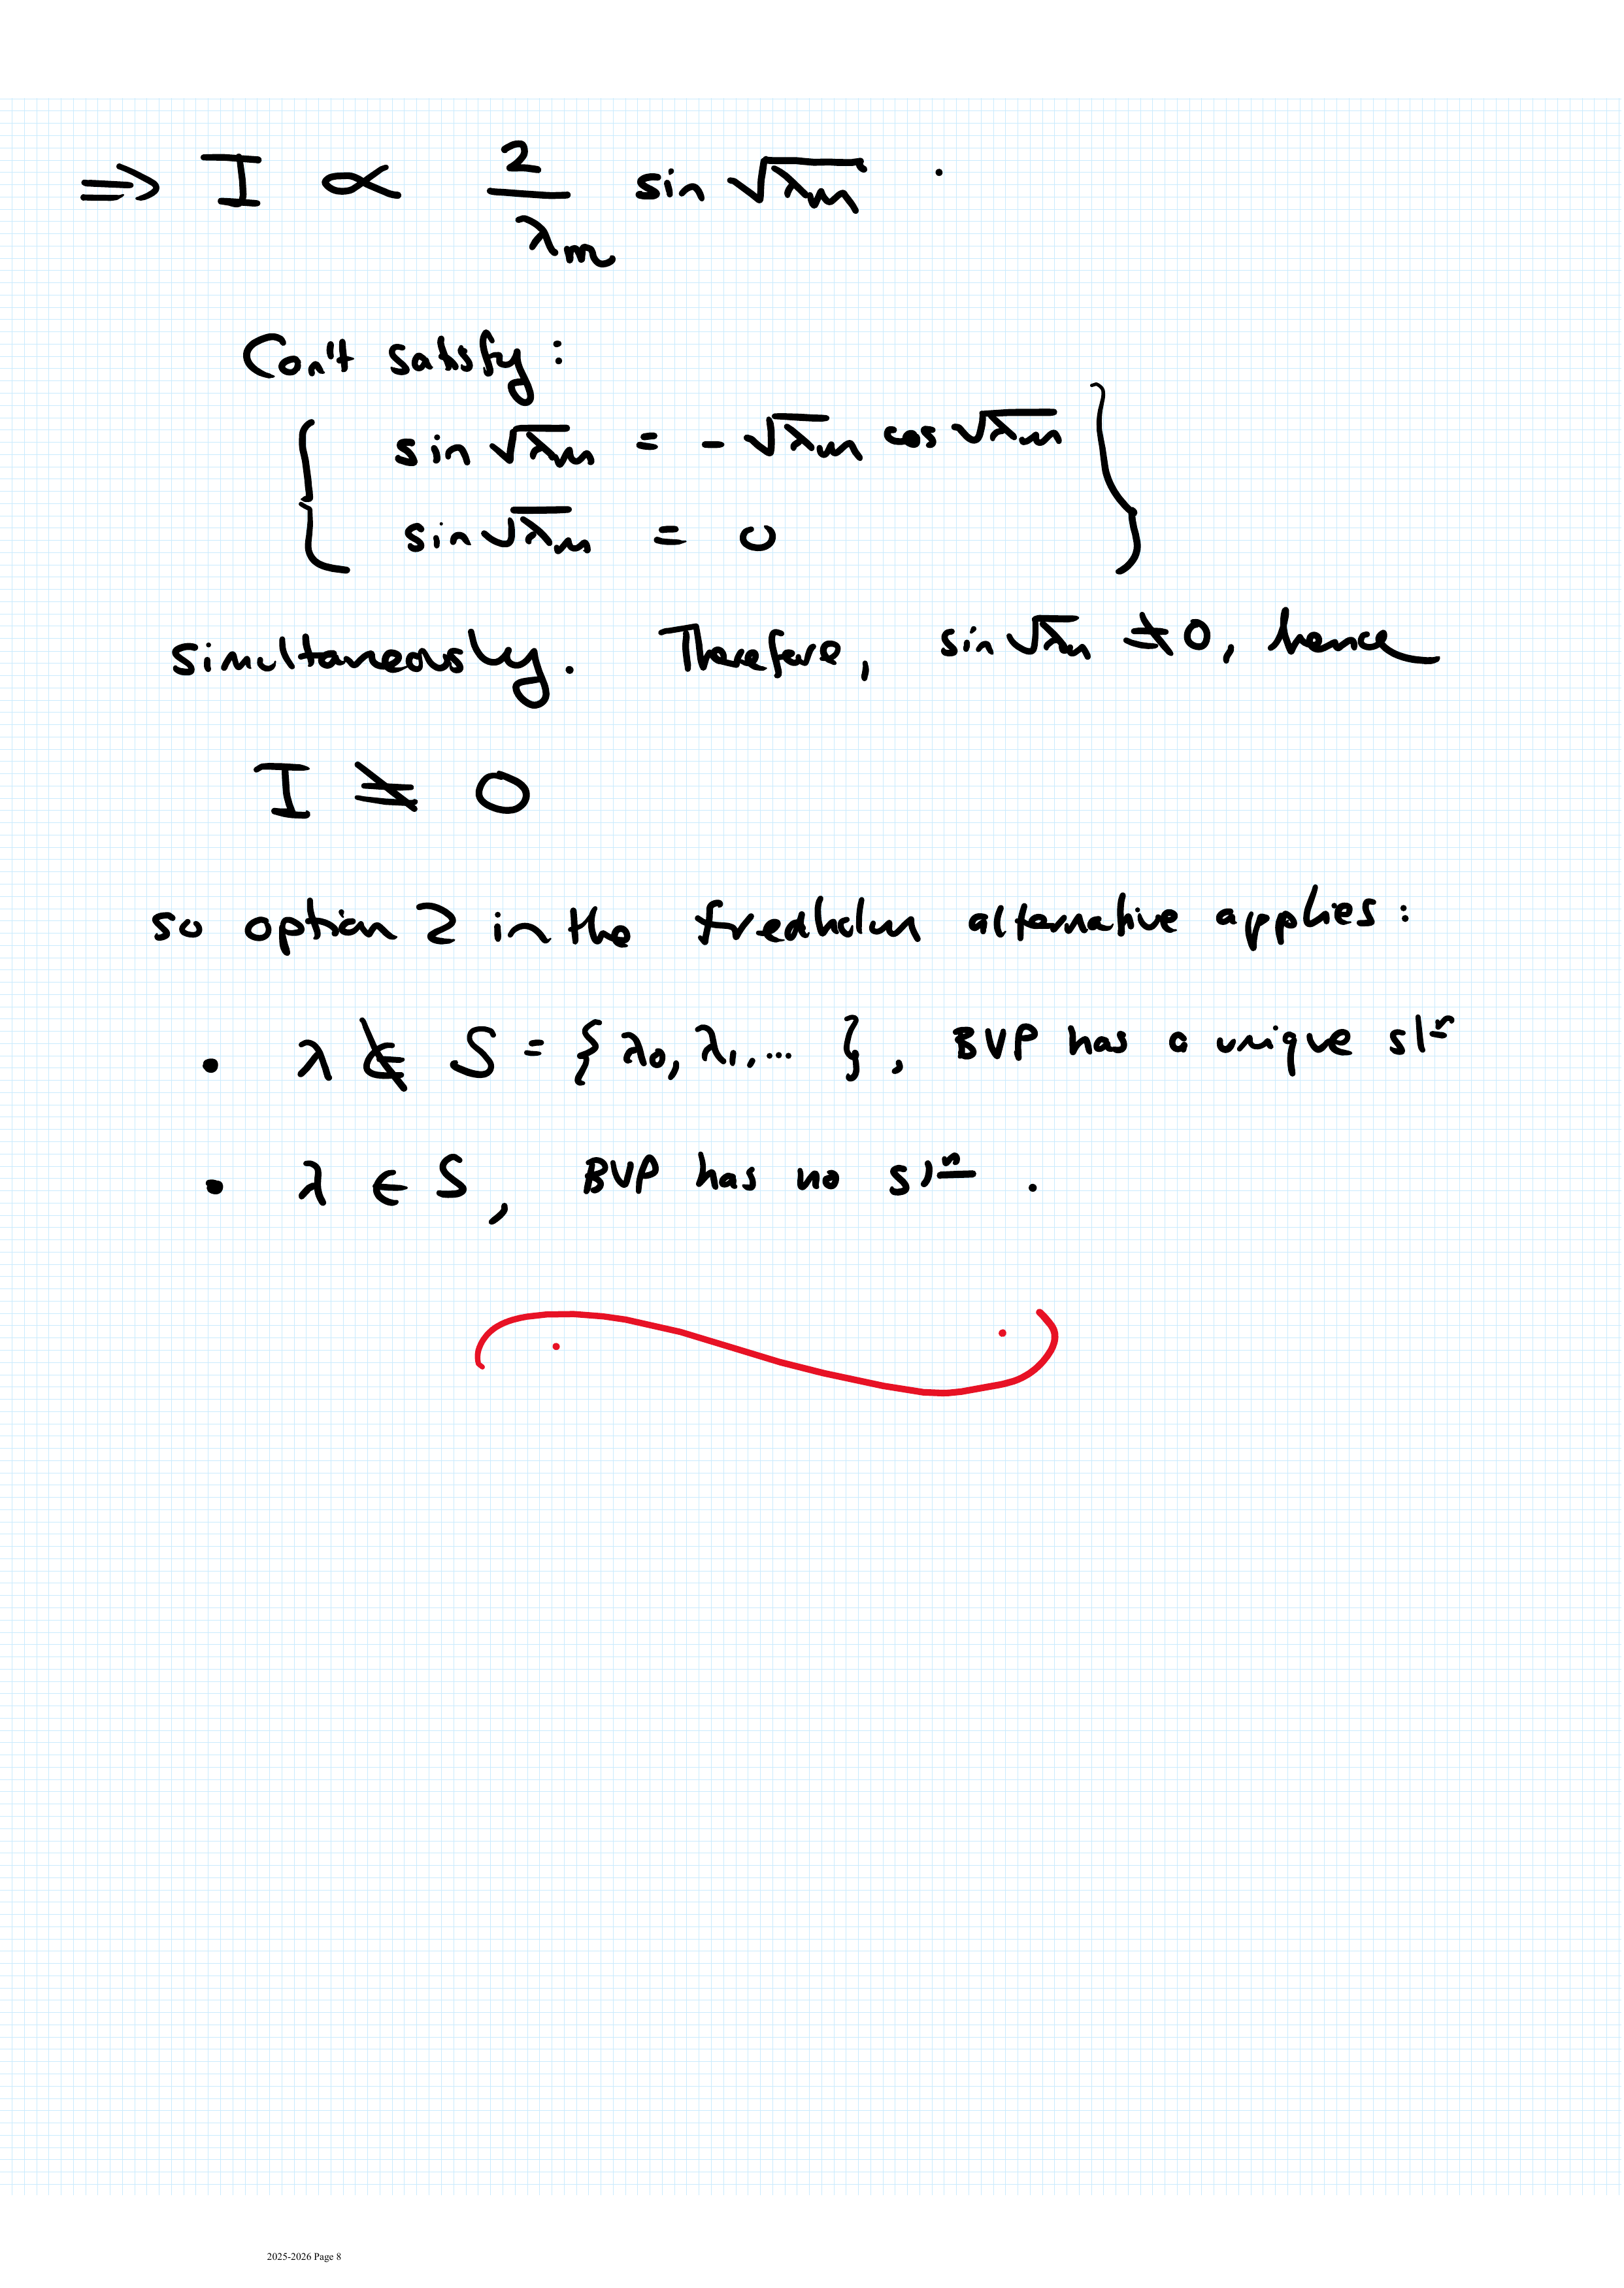 ⇒ I ∝ 2/λₘ sin √λₘ .
Can't satisfy :
{ sin √λₘ = - √λₘ cos √λₘ }
sin √λₘ = 0
simultaneously. Therefore, sin √λₘ ≠ 0, hence
I ≠ 0
so option 2 in the fredholm alternative applies :
• λ ∉ S = { λ₀, λ₁, ... } , BVP has a unique slⁿ
• λ ∈ S , BVP has no slⁿ .
2025-2026 Page 8